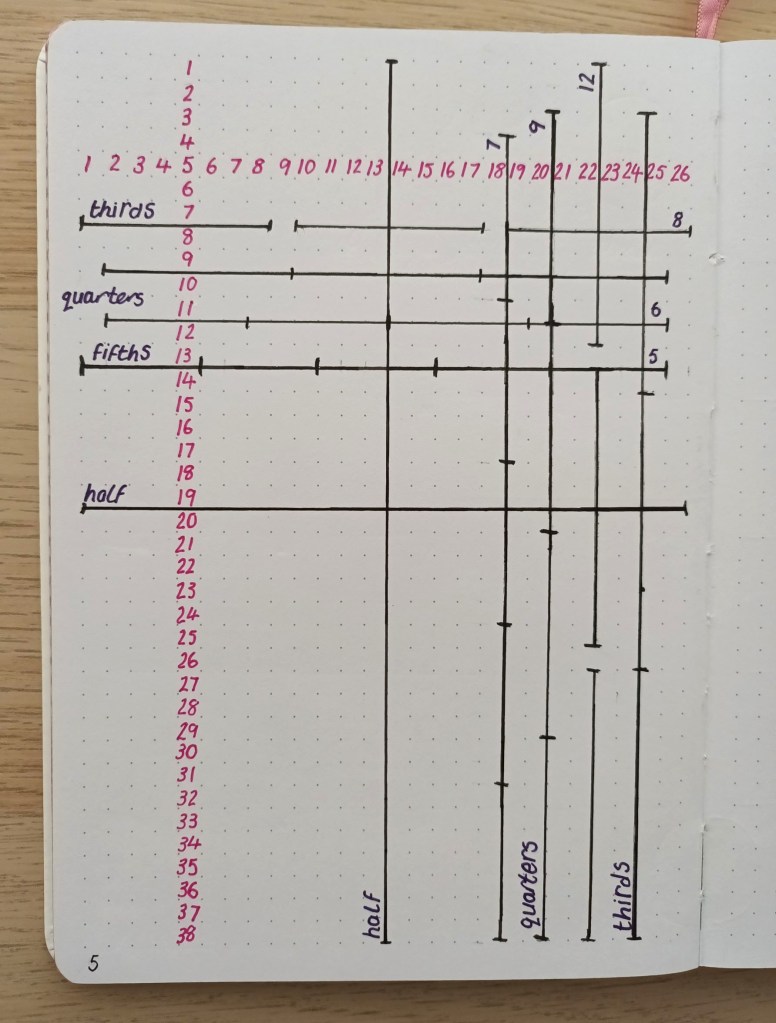 1
2
3
4
12
9
7
1 2 3 4 5 6 7 8 9 10 11 12 13 14 15 16 17 18 19 20 21 22 23 24 25 26
6
thirds 7
8
8
9
10
quarters 11
6
12
fifths 13
5
14
15
16
17
18
half 19
20
21
22
23
24
25
26
27
28
29
30
31
32
33
34
35
36
37
38
half
quarters
thirds
5